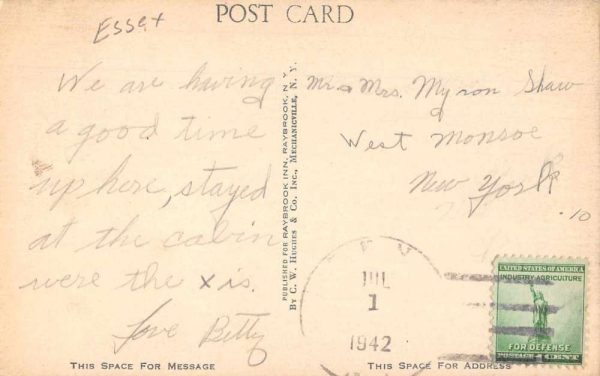 POST CARD
Essex
We are having
a good time
up here, stayed
at the cabin
were the x is.
Love Betty
THIS SPACE FOR MESSAGE
PUBLISHED FOR RAYBROOK INN, RAYBROOK, N. Y.
BY C. W. HUGHES & CO. INC., MECHANICVILLE, N. Y.
Mr. & Mrs. Myron Shaw
West Monroe
New York
.10
JUL
1
1942
UNITED STATES OF AMERICA
INDUSTRY AGRICULTURE
FOR DEFENSE
POSTAGE 1 CENT
THIS SPACE FOR ADDRESS